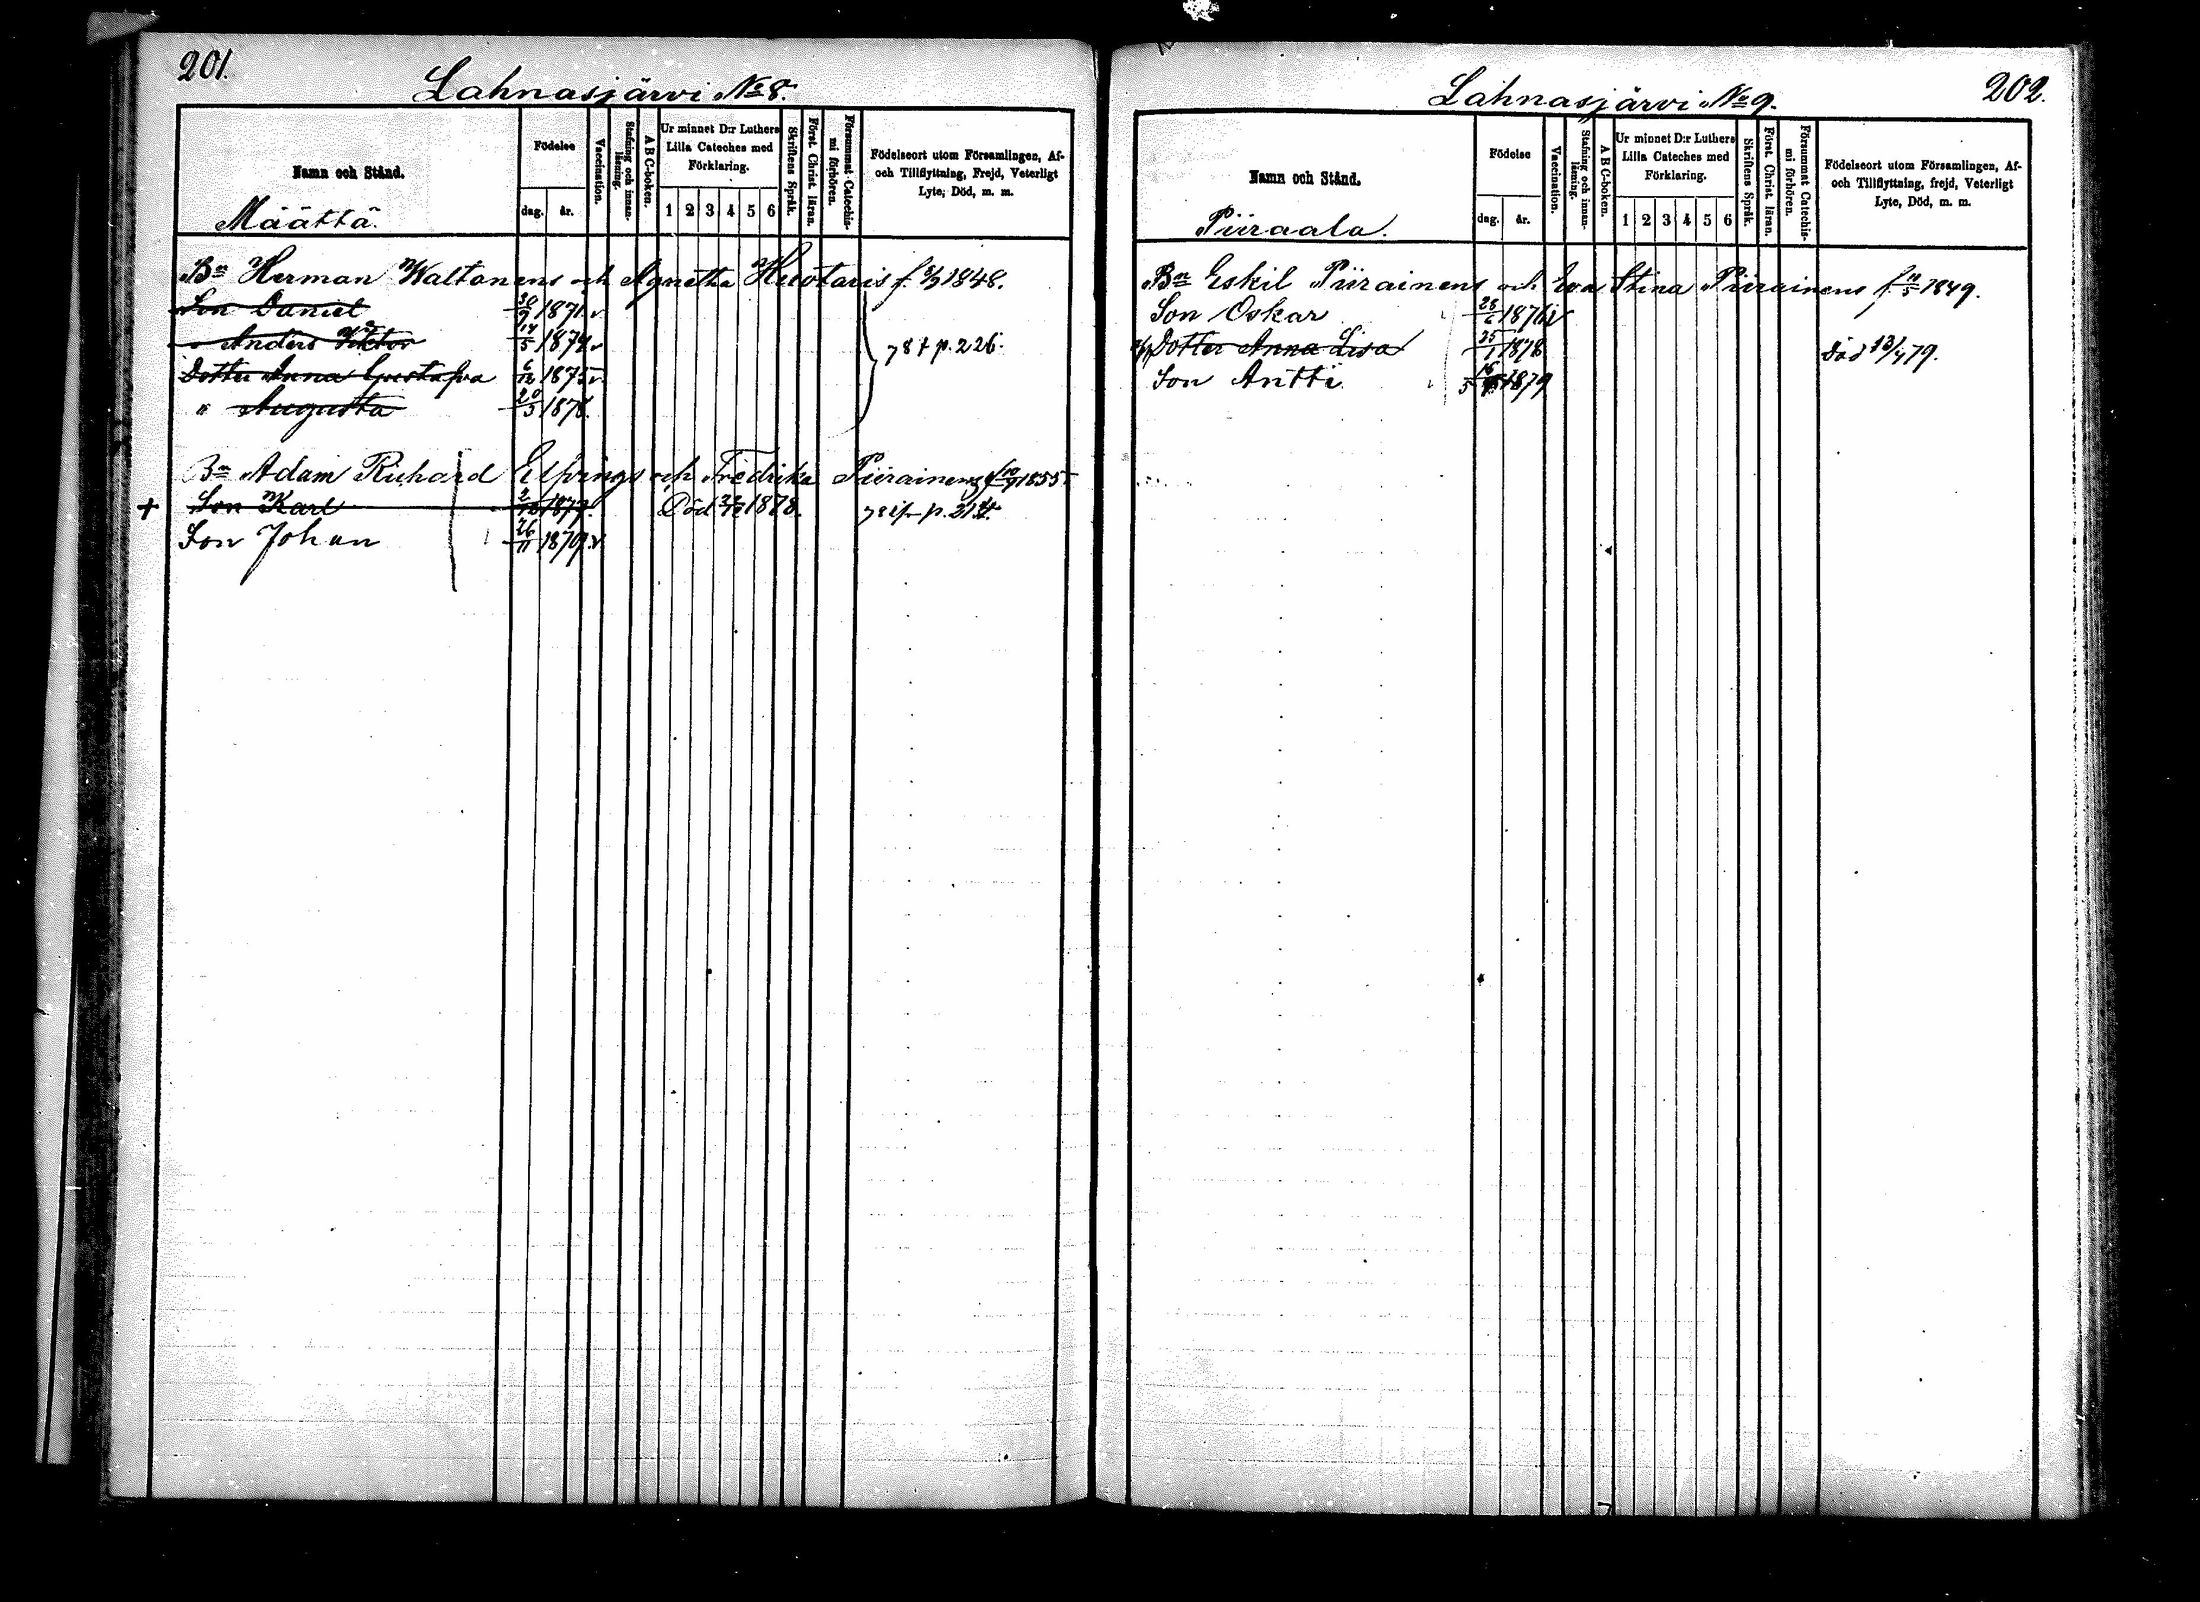 201.
Lahnasjärvi No 8.
Namn och Stånd.
Födelse
dag. år.
Vaccination.
Stafning och innanläsning.
A B C-boken.
Ur minnet D:r Luthers
Lilla Cateches med
Förklaring.
1 2 3 4 5 6
Skriftens Språk.
Föret. Christ. läran.
Försummat Catechismi förhören.
Födelseort utom Församlingen, Af-
och Tillflyttning, Frejd, Veterligt
Lyte, Död, m. m.
Määttä.
Bn Herman Waltonens och Agnetha f. 1848.
Son Daniel 1871. v
" Anders Viktor 14/5 1874 v 78 t p. 226.
Dotter Anna Gustafva 6/12 1875 v
" Augusta 20/5 1878.
Bn Adam Richard och Fredrika Piirainens 1855
+ Son Karl 1877. Död 1878. p.
Son Johan 26/11 1879. v
202.
Lahnasjärvi No 9.
Namn och Stånd.
Födelse
dag. år.
Vaccination.
Stafning och innanläsning.
A B C-boken.
Ur minnet D:r Luthers
Lilla Cateches med
Förklaring.
1 2 3 4 5 6
Skriftens Språk.
Föret. Christ. läran.
Försummat Catechismi förhören.
Födelseort utom Församlingen, Af-
och Tillflyttning, frejd, Veterligt
Lyte, Död, m. m.
Piiraala.
Bn Eskil Piirainens och Eva Stina Piirainens f. 1849.
Son Oskar 28/6 1876 v
Dotter Anna Lisa 25/1 1878 Död 13/4 79.
Son Antti 1879